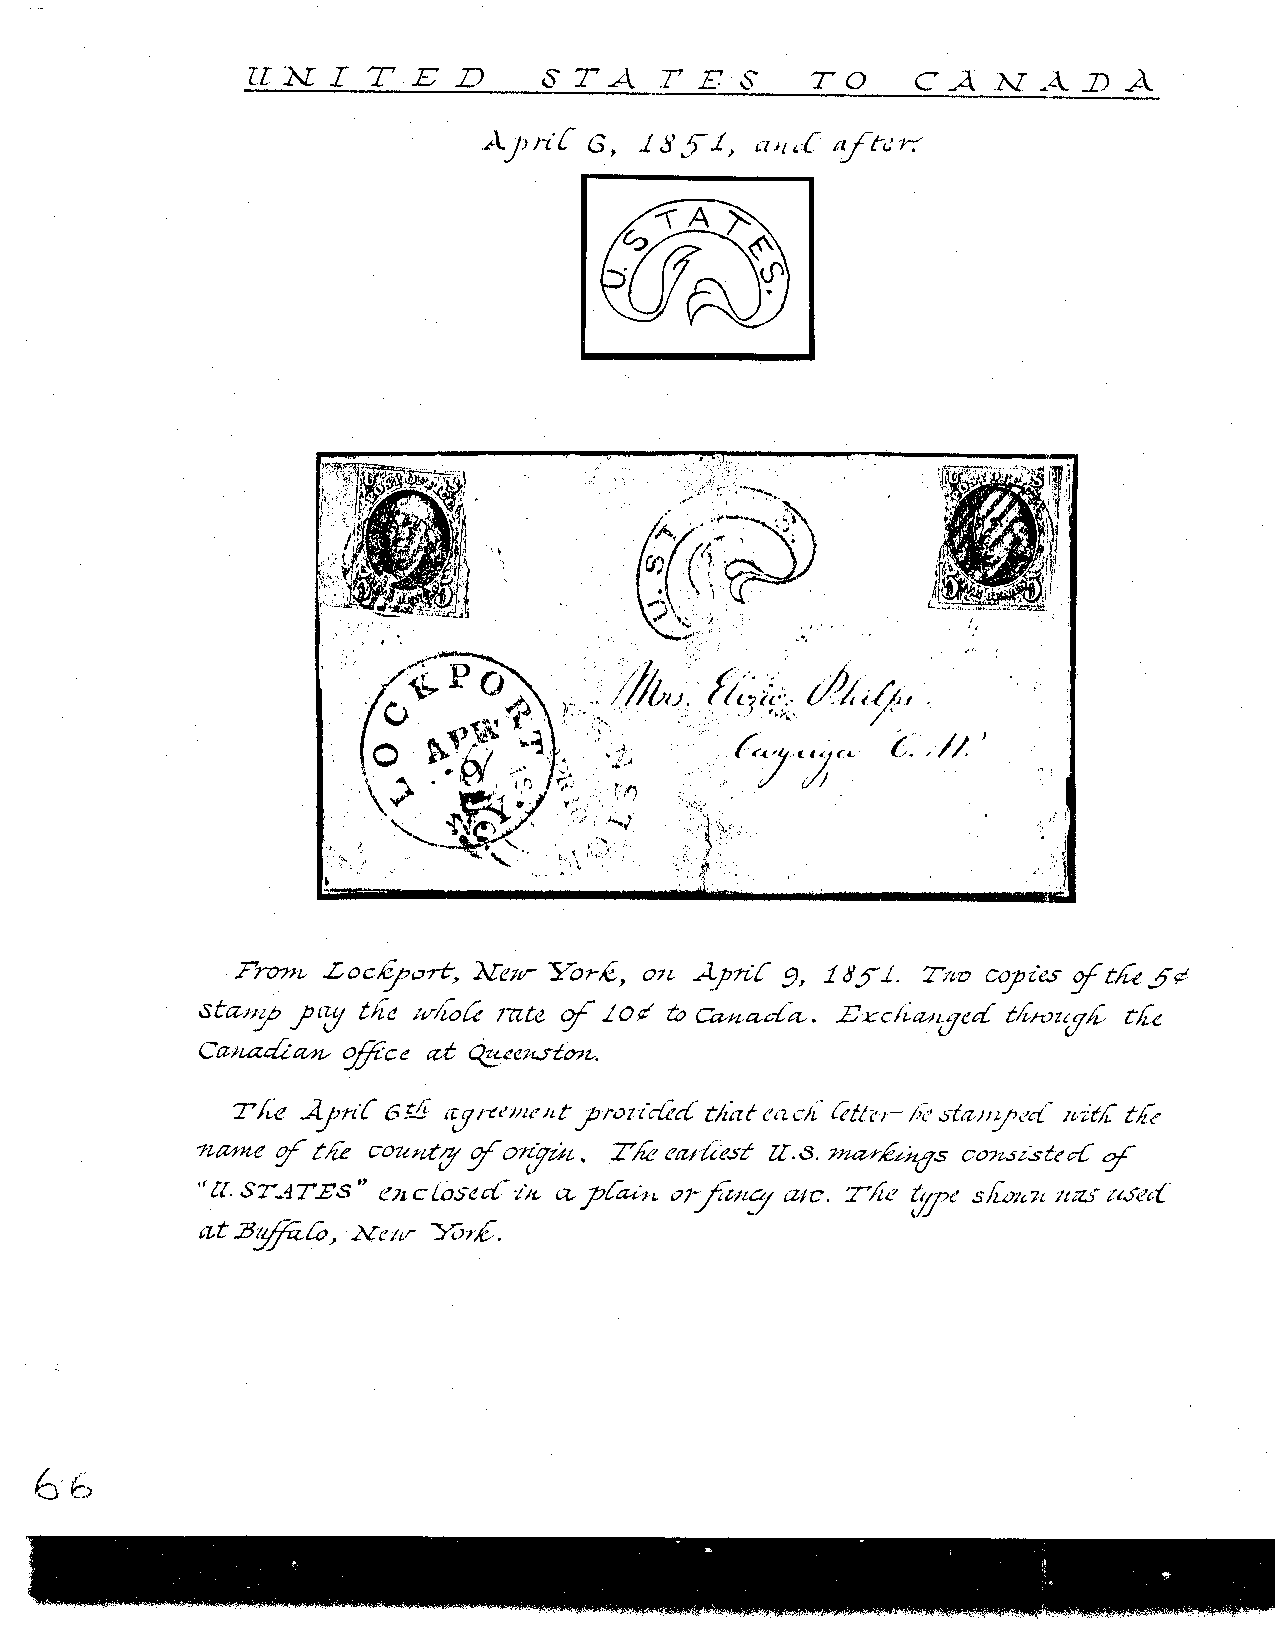 UNITED STATES TO CANADA
April 6, 1851, and after.
U. STATES.
U. ST S.
LOCKPORT
APR
9
N.Y.
Mrs. Eliza Phelps
Cayuga C. W.
From Lockport, New York, on April 9, 1851. Two copies of the 5¢
stamp pay the whole rate of 10¢ to Canada. Exchanged through the
Canadian office at Queenston.
The April 6th agreement provided that each letter be stamped with the
name of the country of origin. The earliest U.S. markings consisted of
"U. STATES" enclosed in a plain or fancy arc. The type shown was used
at Buffalo, New York.
66